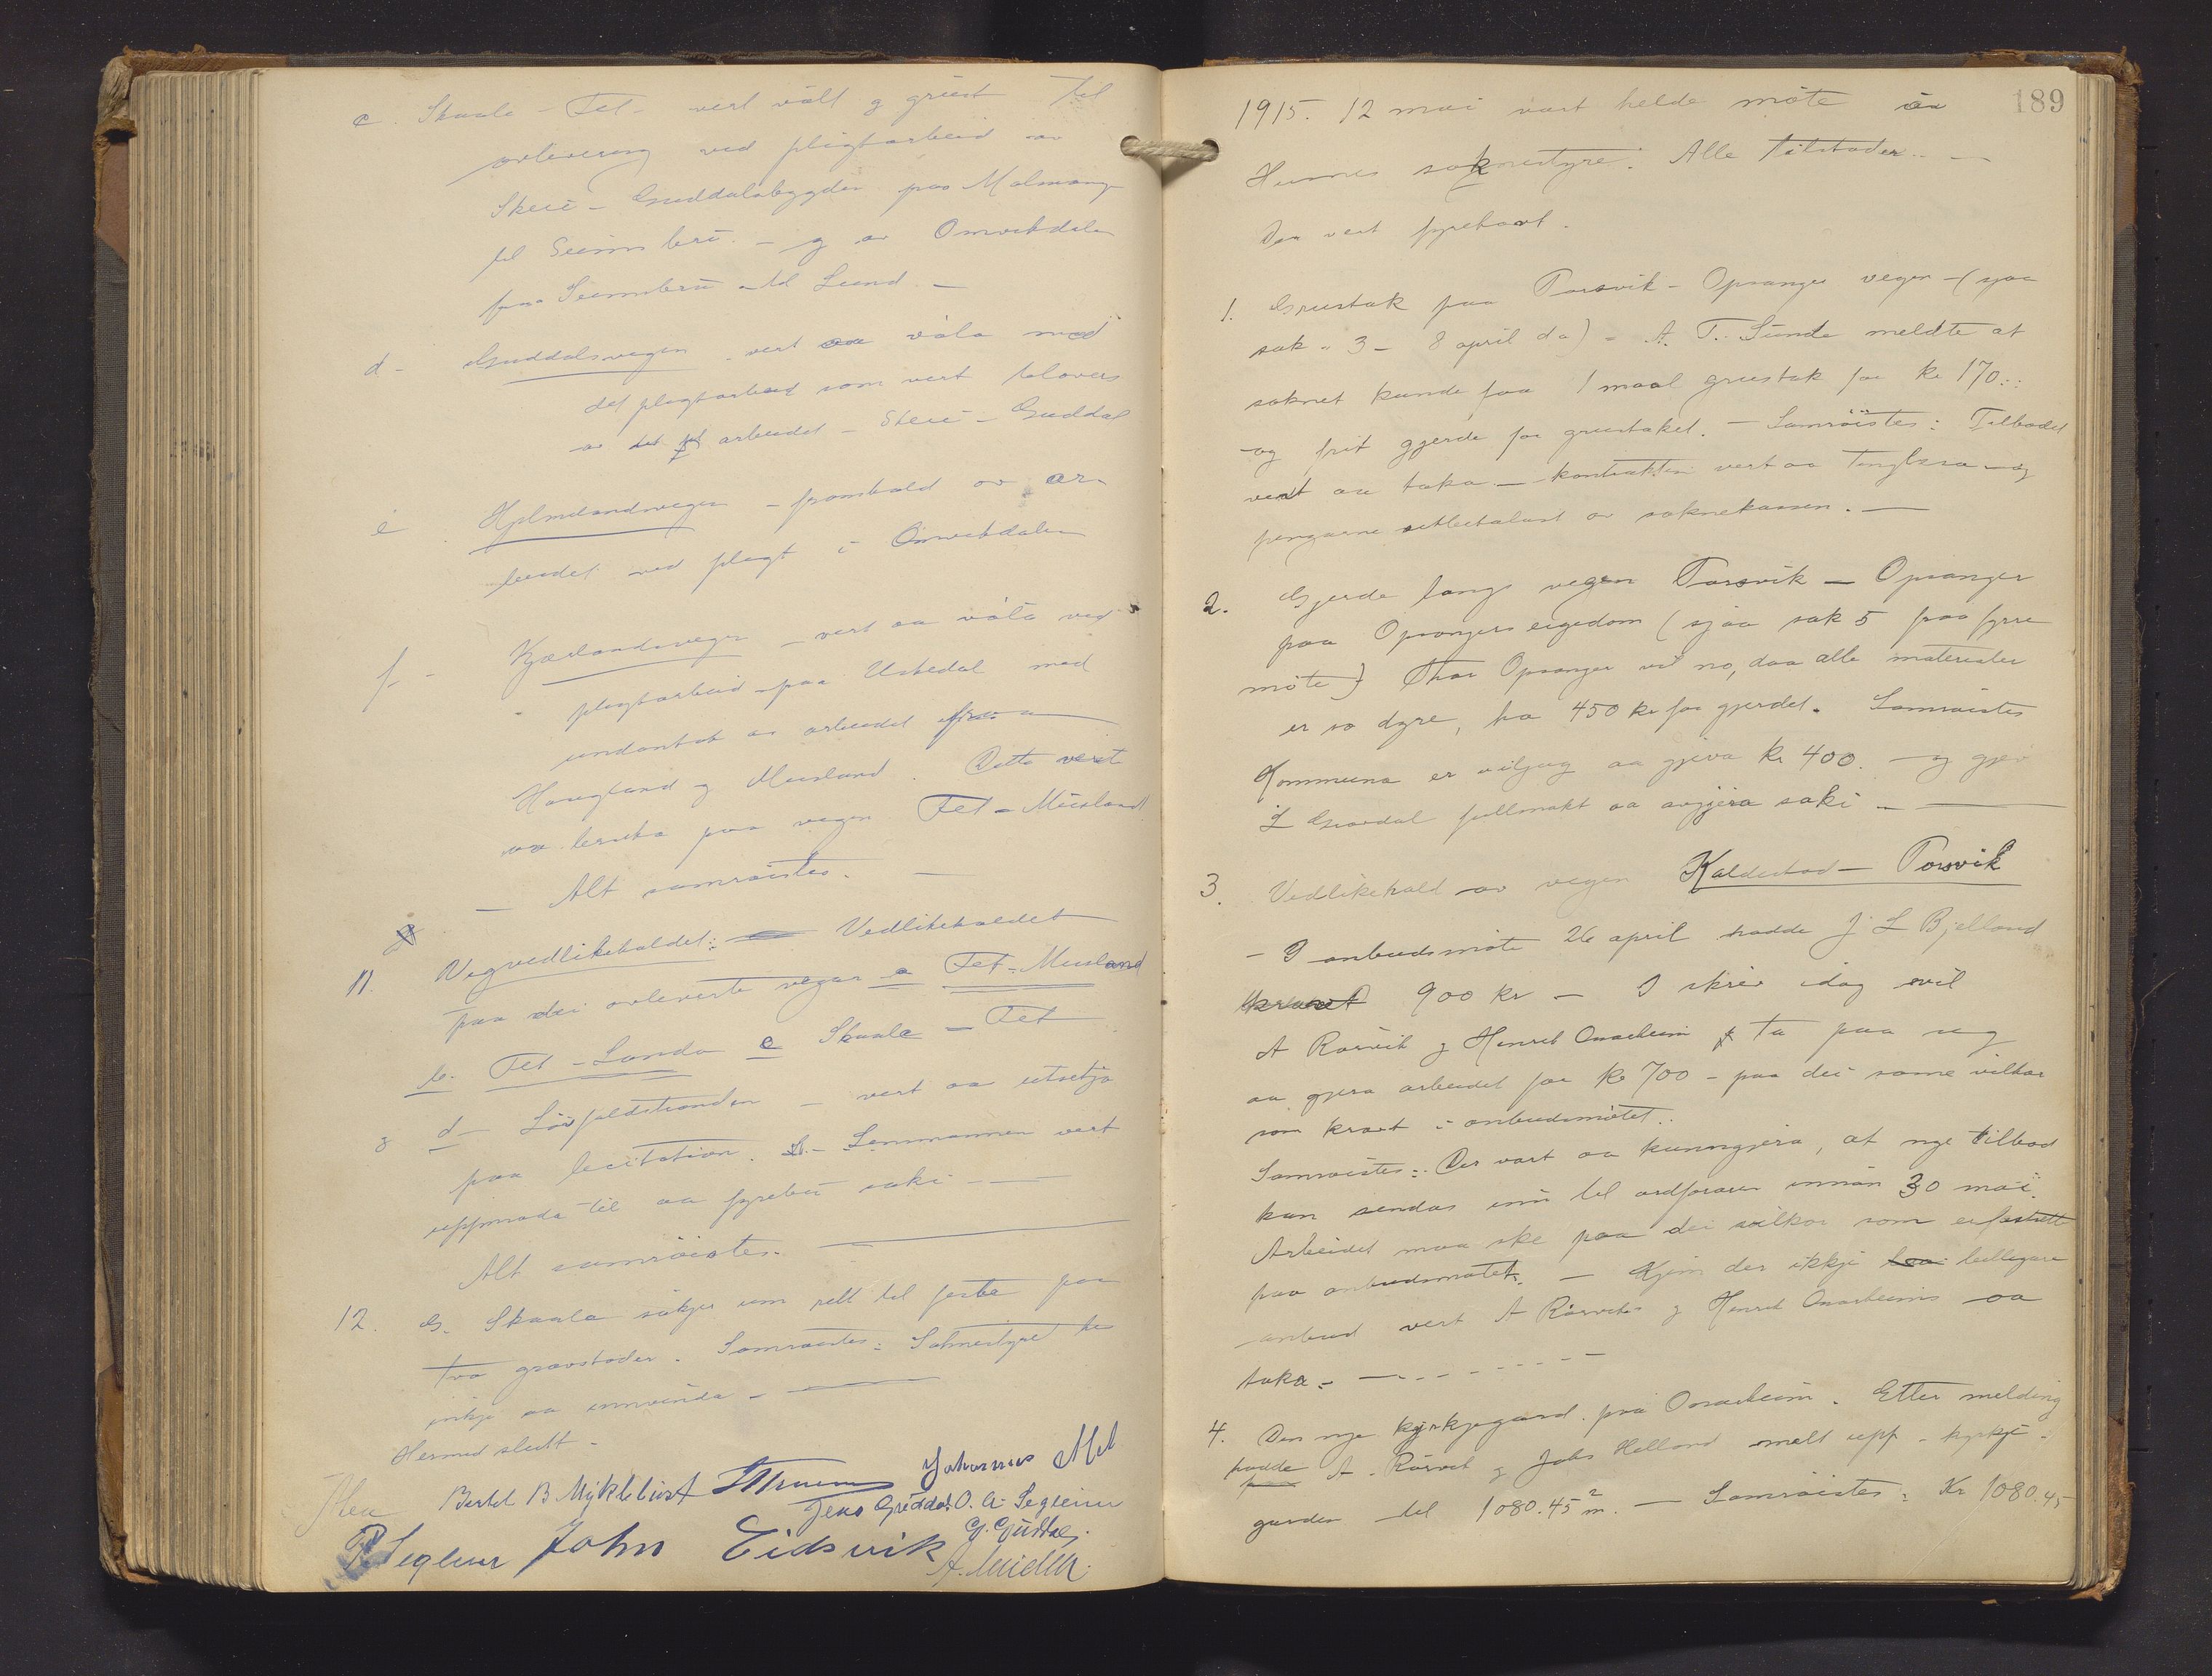 c. Skaala - Fet - vert vølt g gruist til
avlevering ved pligtarbeid av
Skeie - Guddalsbygden paa Malmanger
til Seimsbru. - g av Omvikdalen
fraa Seimsbru til Lund. -
d - Guddalsvegen vert aa vøla med
det pligtarbeid som vert tilovers
av det arbeidet - Skeie - Guddal
e. Hjelmelandsvegen - framhald av ar-
beidet ved pligt i Omvikdalen
f - Kjærlandsvegen - vert aa vøla ved
pligtarbeid paa Uskedal med
undantak av arbeidet fraa
Haugland g Musland. Dette vert
aa bruka paa vegen Fet - Musland
- Alt samrøistes. -
11. Vegvedlikehaldet: Vedlikehaldet
paa dei avleverte vegar a Fet - Musland
b. Fet - Sanda c Skaala - Fet
g d - Løfaldstranden - vert aa utsetja
paa licitation. - Lensmannen vert
uppmoda til aa fyrebu saki -
Alt samrøistes. -
12. G. Skaala søkjer um rett til feste paa
tvo gravstader. Samrøistes: Soknestyret he
inkje aa innvenda -
Hermed slutt -
Bertel B Myklebust Johannes Mel
Jens Guddal O. A. Segleim
R Segleim John Eidsvik G. Guddal
A. Midtun
189
1915. 12 mai vart helde møte av
Husnes soknestyre: Alle tilstader. -
Der vert fyrehavt.
1. Grustak paa Porsvik - Opsanger vegen - (sjaa
sak 3 - 8 april da) - A. T. Sunde meldte at
soknet kunde faa 1 maal grustak for kr 170.:
og frit gjerde for grustaket. - Samrøistes: Tilbodet
vert aa taka - kontrakten vert aa tinglesa og
pengarne utbetalast av soknekassen. -
2. Gjerde langs vegen Porsvik - Opsanger
paa Opsangers eigedom (sjaa sak 5 paa fyrre
møte) Thor Opsanger vil no, daa alle materialer
er so dyre, ha 450 kr for gjerdet. Samrøistes
Kommuna er viljug aa gjeva kr 400. - g gjev
L Guddal fullmakt aa avgjera saki -
3. Vedlikehald av vegen Kaldestad - Porsvik
- I anbudsmøte 26 april hadde J L Bjelland
kravt 900 kr - I skriv idag vil
A Røsvik g Henrik Onarheim ta paa seg
aa gjera arbeidet for kr 700 - paa dei same vilkor
som kravt i anbudsmøtet.
Samrøistes: Der vart aa kunngjera, at nye tilbod
kan sendas inn til ordføraren innan 30 mai.
Arbeidet maa ske paa dei vilkor som er fastsatte
paa anbudsmøtet. - Kjem der ikkje billigare
anbud vert A Røsviks g Henrik Onarheims aa
taka. -
4. Den nye kyrkjegard paa Onarheim. Etter melding
hadde A. Røsvik g Johs Helland mælt upp kyrkje-
garden til 1080.45 m². - Samrøistes: Kr 1080.45